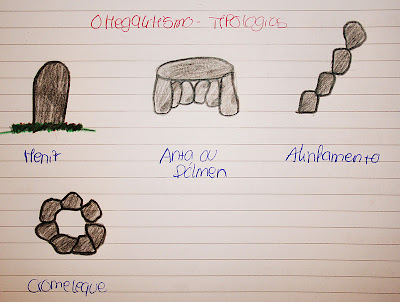 O Megalitismo - TIPOLOGIAS
Menir
Anta ou
Dólmen
Alinhamento
Cromeleque